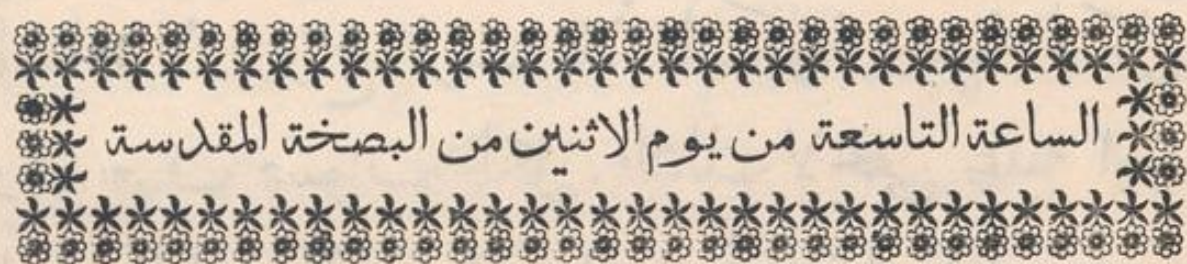 الساعة التاسعة من يوم الاثنين من البصخة المقدسة